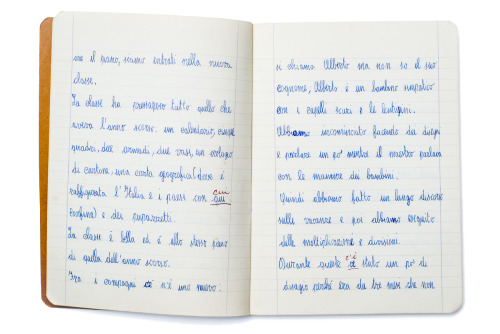 so il piano, siamo entrati nella nuova
classe.
La classe ha pressapoco tutto quello che
aveva l'anno scorso: un calendario, cinque
quadri, due armadi, due vasi, un orologio
di cartone, una carta geografica (dove è
raffigurata l'Italia e i paesi con cui
cui
confina) e dei pupazzetti.
La classe è bella ed è allo stesso piano
di quella dell'anno scorso.
Fra i compagni c'è n'è uno nuovo:
si chiama Alberto ma non so il suo
cognome, Alberto è un bambino simpatico
con i capelli scuri e le lentiggini.
Abbiamo incominciato facendo dei disegni
e parlare un po' mentre il maestro parlava
con le mamme dei bambini.
Quindi abbiamo fatto un lungo discorso
sulle vacanze e poi abbiamo eseguito
delle moltiplicazioni e divisioni.
c'è
Durante queste è stato un po' di
disagio perché era da tre mesi che non